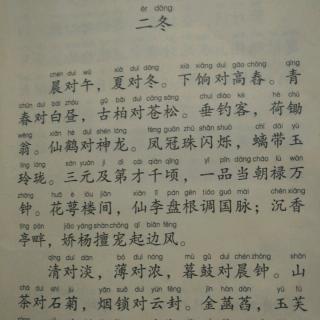 èr dōng
二冬
chén duì wǔ xià duì dōng xià xiǎng duì gāo chōng qīng
晨对午，夏对冬。下饷对高舂。青
chūn duì bái zhòu gǔ bǎi duì cāng sōng chuí diào kè hè chú
春对白昼，古柏对苍松。垂钓客，荷锄
wēng xiān hè duì shén lóng fèng guān zhū shǎn shuò chī dài yù
翁。仙鹤对神龙。凤冠珠闪烁，螭带玉
líng lóng sān yuán jí dì cái qiān qǐng yī pǐn dāng cháo lù wàn
玲珑。三元及第才千顷，一品当朝禄万
zhōng huā è lóu jiān xiān lǐ pán gēn tiáo guó mài chén xiāng
钟。花萼楼间，仙李盘根调国脉；沉香
tíng pàn jiāo yáng shàn chǒng qǐ biān fēng
亭畔，娇杨擅宠起边风。
qīng duì dàn bó duì nóng mù gǔ duì chén zhōng shān
清对淡，薄对浓，暮鼓对晨钟。山
chá duì shí jú yān suǒ duì yún fēng
茶对石菊，烟锁对云封。金菡萏，玉芙